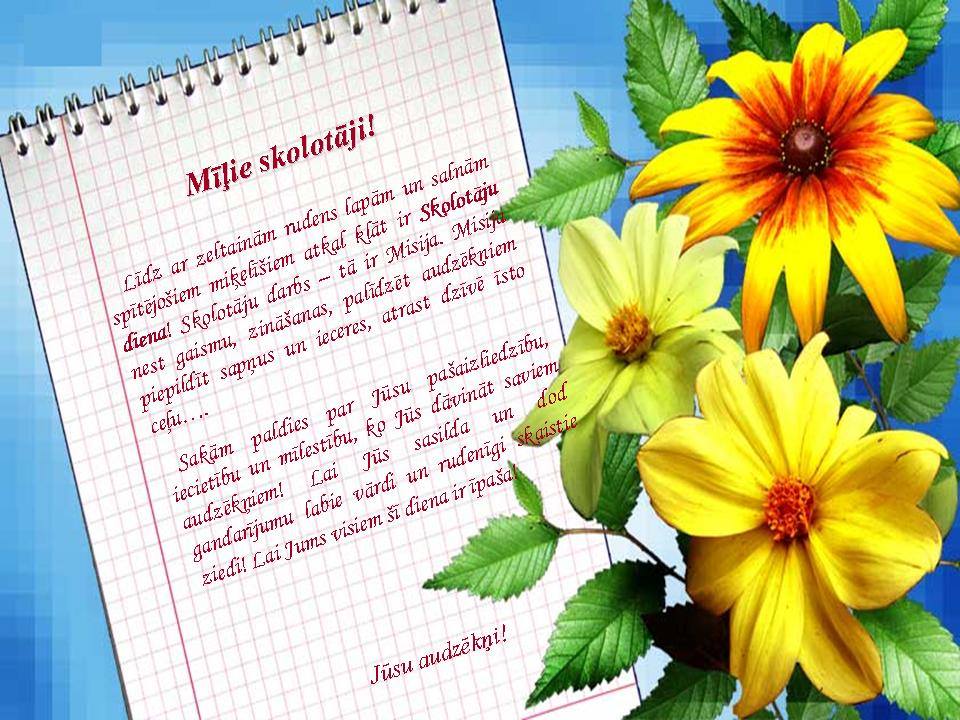 Mīļie skolotāji!
Līdz ar zeltainām rudens lapām un salnām
spītējošiem miķelīšiem atkal klāt ir Skolotāju
diena! Skolotāju darbs – tā ir Misija. Misija
nest gaismu, zināšanas, palīdzēt audzēkņiem
piepildīt sapņus un ieceres, atrast dzīvē īsto
ceļu….
Sakām paldies par Jūsu pašaizliedzību,
iecietību un mīlestību, ko Jūs dāvināt saviem
audzēkņiem! Lai Jūs sasilda un dod
gandarījumu labie vārdi un rudenīgi skaistie
ziedi! Lai Jums visiem šī diena ir īpaša!
Jūsu audzēkņi!